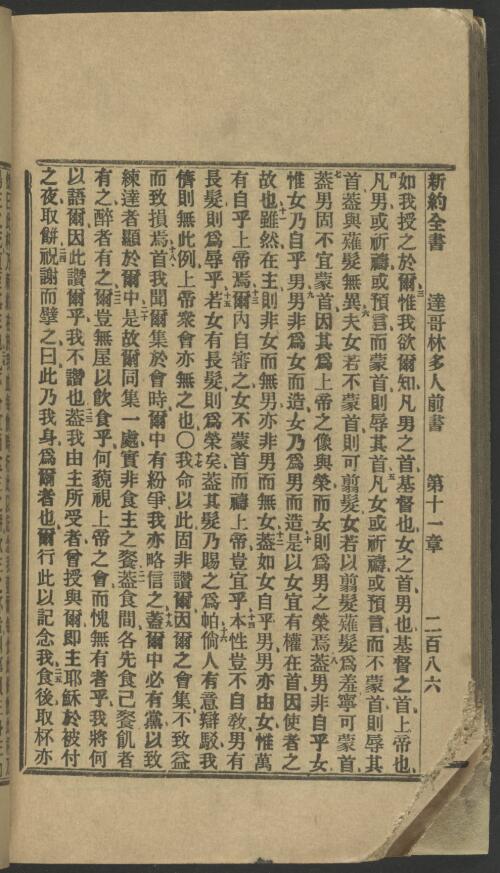 新約全書　達哥林多人前書　第十一章　二百八六
如我授之於爾、三惟我欲爾知、凡男之首基督也、女之首男也、基督之首上帝也、
四凡男或祈禱、或預言而蒙首、則辱其首、五凡女或祈禱、或預言而不蒙首、則辱其
首、蓋與薙髮無異、六夫女若不蒙首、則可翦髮、女若以翦髮薙髮爲羞、寧可蒙首、
七蓋男固不宜蒙首、因其爲上帝之像與榮、而女則爲男之榮焉、八蓋男非自乎女、
惟女乃自乎男、九男非爲女而造、女乃爲男而造、十是以女宜有權在首、因使者之
故也、十一雖然在主、則非女而無男、亦非男而無女、十二蓋如女自乎男、男亦由女、惟萬
有自乎上帝焉、十三爾內自審之、女不蒙首而禱上帝、豈宜乎、十四本性豈不自教、男有
長髮、則爲辱乎、十五若女有長髮、則爲榮矣、蓋其髮乃賜之爲帕、十六倘人有意辯駁、我
儕則無此例、上帝衆會亦無之也、〇十七我命以此、固非讚爾、因爾之會集、不致益
而致損焉、十八首我聞爾集於會時、爾中有紛爭、我亦略信之、十九蓋爾中必有黨、以致
練達者顯於爾中、二十是故爾同集一處、實非食主之餐、二一蓋食間、各先食己餐、飢者
有之、醉者有之、二二爾豈無屋以飲食乎、何藐視上帝之會、而愧無有者乎、我將何
以語爾、因此讚爾乎、我不讚也、二三蓋我由主所受者、曾授與爾、卽主耶穌於被付
之夜取餠、二四祝謝而擘之曰、此乃我身、爲爾者也、爾行此以記念我、二五食後、取杯亦